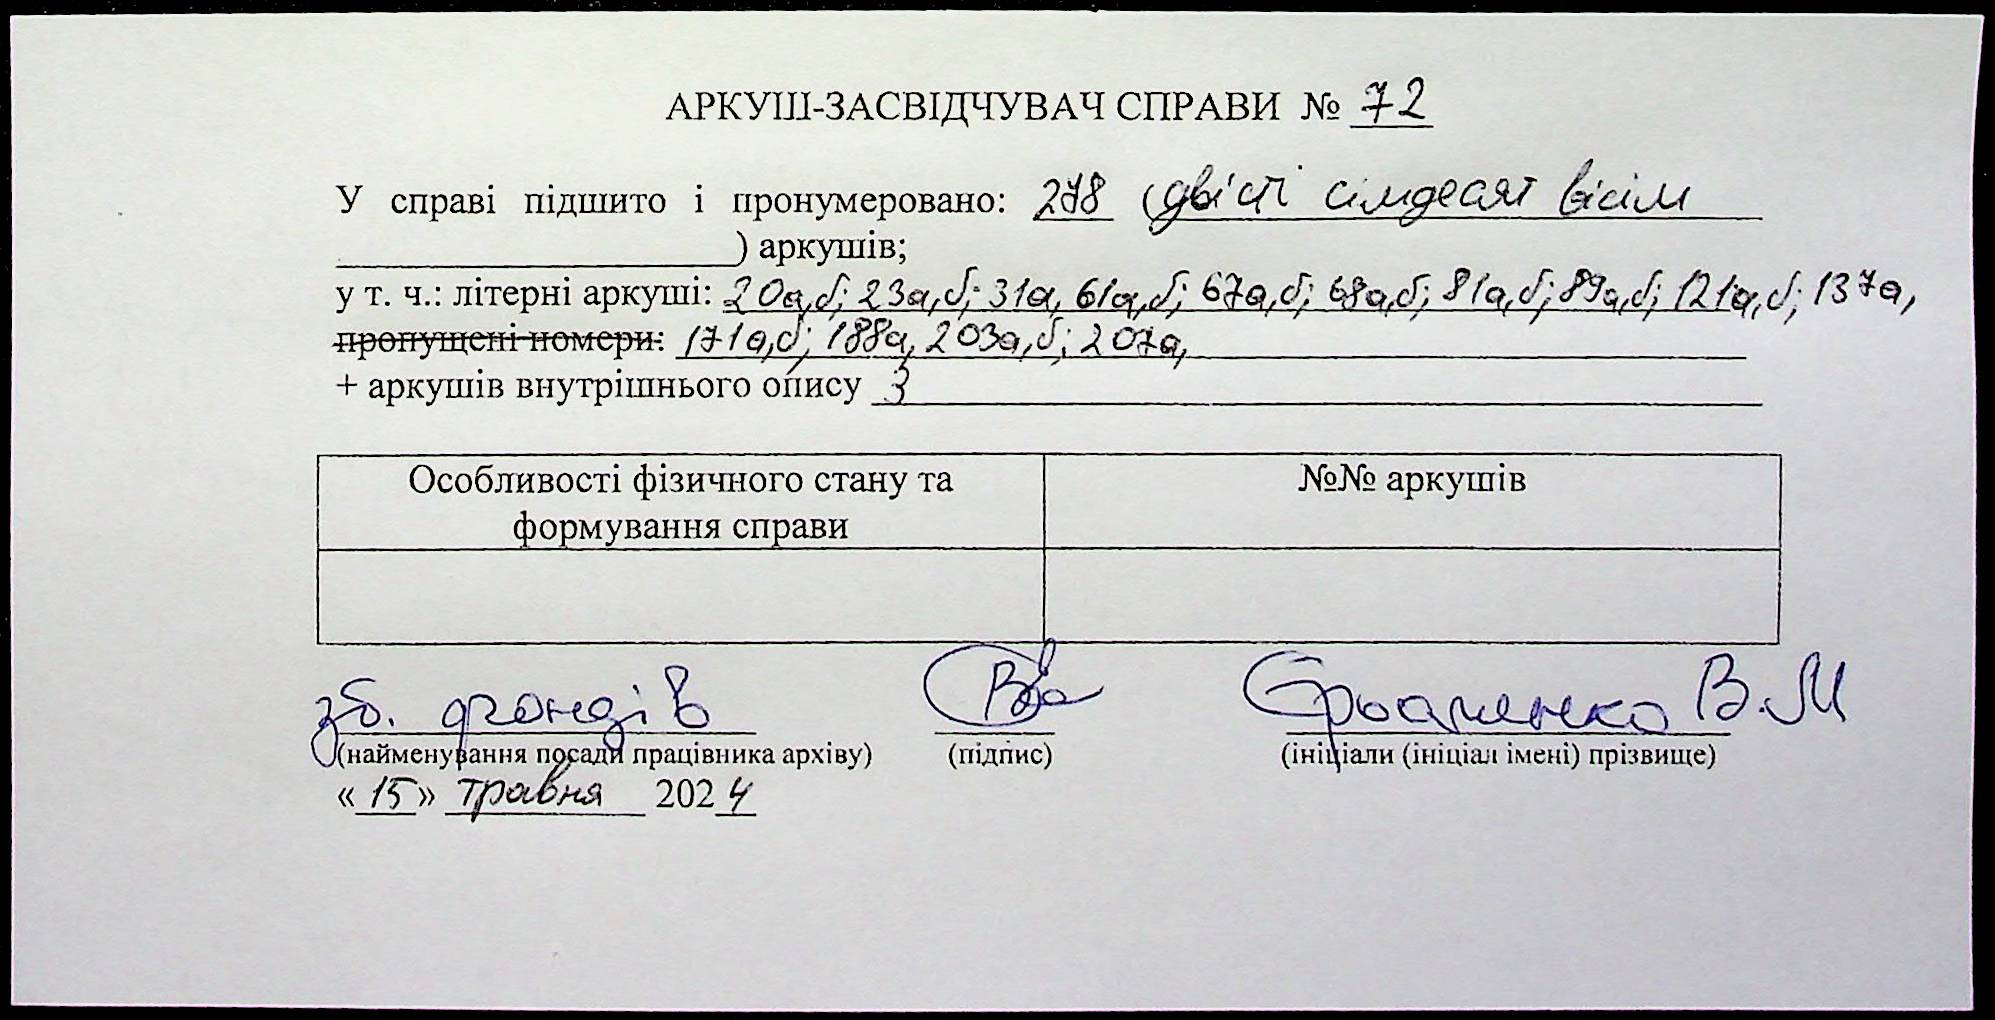 АРКУШ-ЗАСВІДЧУВАЧ СПРАВИ № 72
У справі підшито і пронумеровано: 278 (двісті сімдесят вісім
) аркушів;
у т. ч.: літерні аркуші: 20а,б; 23а,б; 31а, 61а,б; 67а,б; 68а,б; 81а,б; 89а,б; 121а,б; 137а,
пропущені номери: 171а,б; 188а, 203а,б; 207а,
+ аркушів внутрішнього опису 3
Особливості фізичного стану та
формування справи
№№ аркушів
зб. фондів В.М
(найменування посади працівника архіву) (підпис) (ініціали (ініціал імені) прізвище)
«15» травня 2024